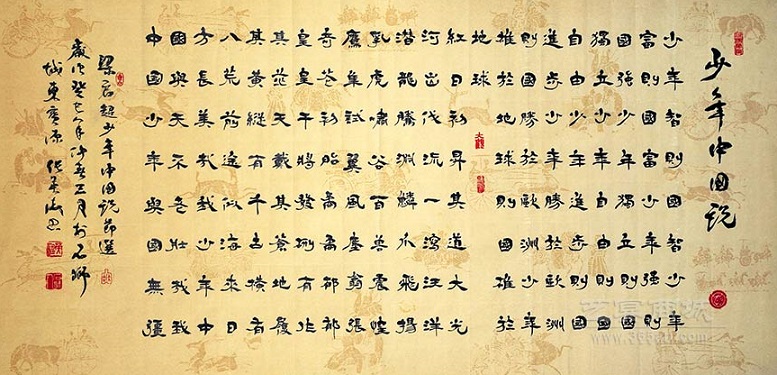 少年中国说
少年智則國智少年
富則國富少年强則
國强少年獨立則國
獨立少年自由則國
自由少年進步則國
進步少年勝於歐洲
則國勝於歐洲少年
雄於地球則國雄於
地球
紅日初昇其道大光
河出伏流一瀉汪洋
潛龍騰淵鱗爪飛揚
乳虎嘯谷百獸震惶
鷹隼試翼風塵翕張
奇花初胎矞矞
皇皇干將發硎有作
其天戴其蒼地履
其黃縱有千古橫有
八荒前途似海來日
方長美哉我少年中
國與天不老壯哉我
中國少年與國無疆
梁啟超少年中國説節選
歲次癸巳年三月於石獅
城東